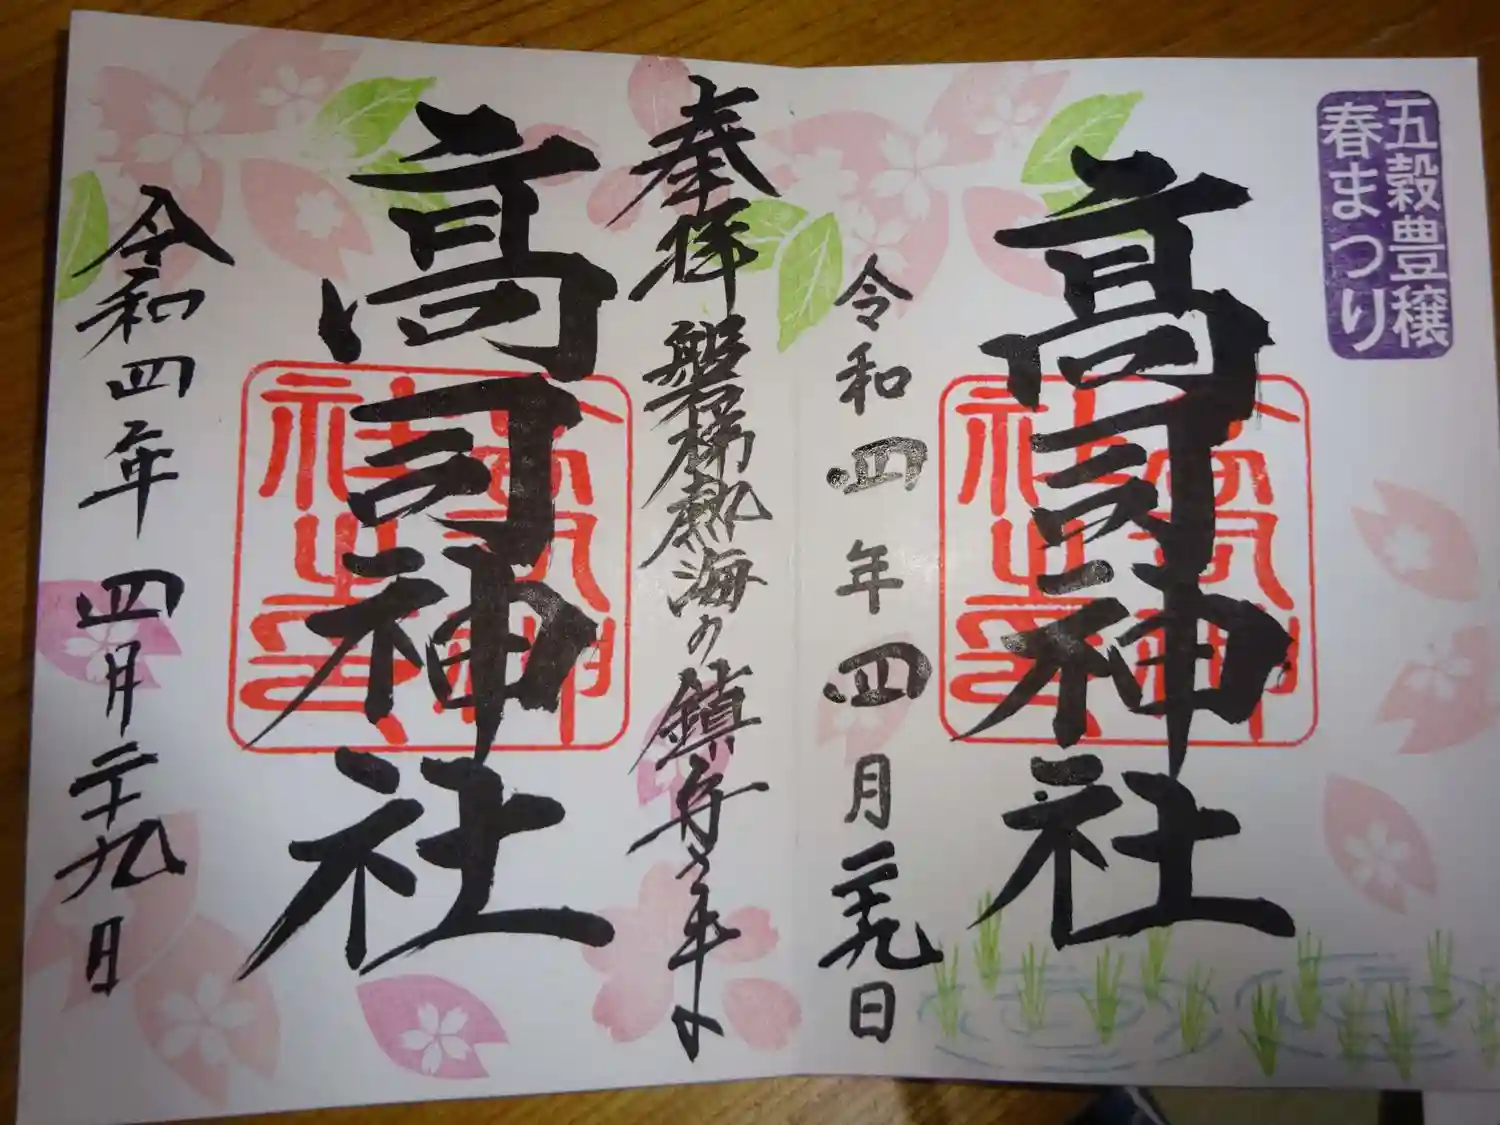 五穀豊穣
春まつり
高司神社
令和四年四月二十九日
奉拝 磐梯熱海の鎮守さま
高司神社
令和四年四月二十九日